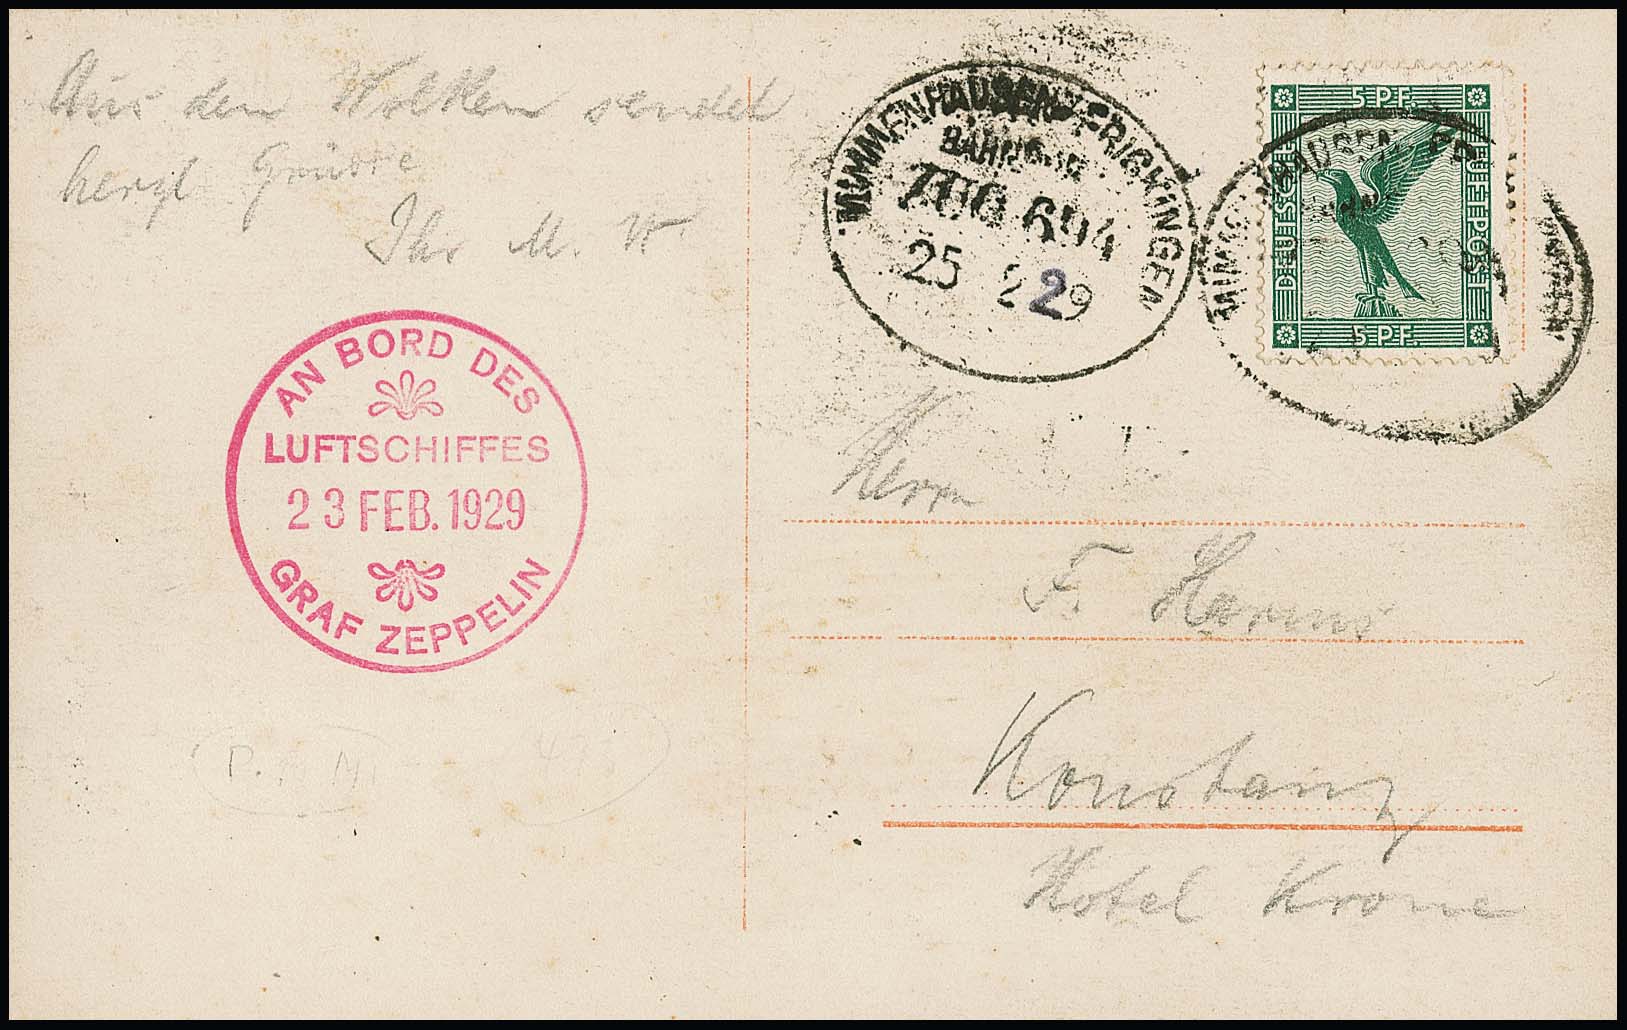 Aus den Wolken sendet
herzl Grüsse
Ihr M. W.
MIMMENHAUSEN-FRICKINGEN
BAHNPOST
ZUG 694
25 2 29
5 PF. 5 PF.
DEUTSCHE LUFTPOST
AN BORD DES
LUFTSCHIFFES
23 FEB. 1929
GRAF ZEPPELIN
Herrn
F. Harms
Konstanz
Hotel Krone